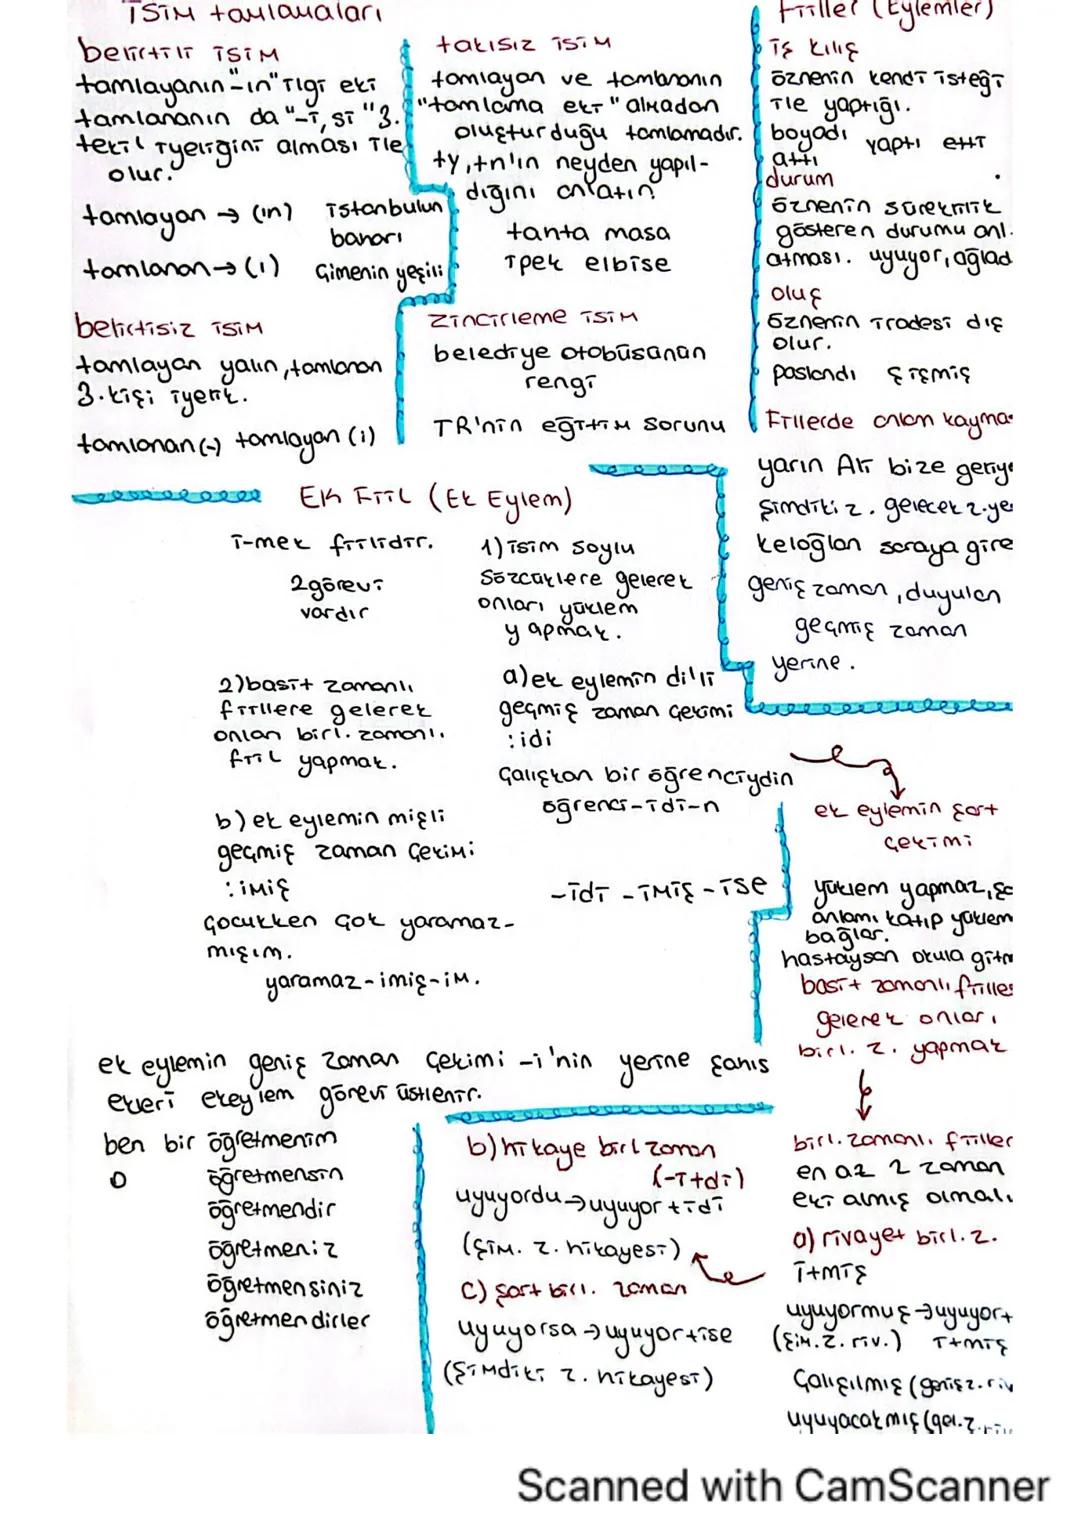 İSİM tamlamaları
belirtili İSİM
tamlayanın "-ın" ilgi eki
tamlananın da "-i, si "3.
tekil iyeliğini alması ile
olur.
tamlayan → (ın) istanbulun
havası
tamlanan → (ı) Çimenin yeşili
belirtisiz İSİM
tamlayan yalın, tamlanan
3. kişi iyelik.
tamlanan (-) tamlayan (i)
takısız İSİM
tamlayan ve tamlananın
"tamlama eki" almadan
oluşturduğu tamlamadır.
ty, tn'ın neyden yapıl-
dığını anlatır.
tahta masa
ipek elbise
Zincirleme İSİM
belediye otobüsünün
rengi
TR'nin eğitim sorunu
Fiiller (Eylemler)
iş kılış
öznenin kendi isteği
ile yaptığı.
boyadı yaptı etti
attı
durum
öznenin süreklilik
gösteren durumu anl.
atması. uyuyor, ağlad
oluş
öznenin iradesi dış
olur.
paslandı şişmiş
Fiillerde anlam kayma
yarın Ali bize geliyo
şimdiki z. gelecek z. ye
keloğlan saraya gire
geniş zaman, duyulan
geçmiş zaman
yerine.
EK FİİL (Ek Eylem)
i-mek fiilidir.
2 görevi
vardır
1) isim soylu
sözcüklere gelerek
onları yüklem
yapmak.
2) basit zamanlı
fiillere gelerek
onları birl. zamanlı.
fiil yapmak.
a) ek eylemin di'li
geçmiş zaman çekimi
: idi
Çalışkan bir öğrenciydin
öğrenci-idi-n
b) ek eylemin mişli
geçmiş zaman çekimi
: imiş
çocukken çok yaramaz-
mışım.
yaramaz-imiş-im.
-idi -imiş -ise
ek eylemin şart
çekimi
yüklem yapmaz, şa
anlamı katıp yüklem
bağlar.
hastaysan okula gitm
basit zamanlı fiille
gelerek onları
birl. z. yapmak
ek eylemin geniş zaman çekimi -i'nin yerine şahıs
ekleri ekeylem görevi üstlenir.
ben bir öğretmenim
O öğretmensin
öğretmendir
öğretmeniz
öğretmensiniz
öğretmendirler
b) hikaye birl zaman
(-i+di)
uyuyordu → uyuyor + idi
(şim. z. hikayesi)
c) şart birl. zaman
uyuyorsa → uyuyor+ise
(şimdiki z. hikayesi)
birl. zamanlı. fiiller
en az 2 zaman
eki almış olmalı.
a) rivayet birl. z.
i+miş
uyuyormuş → uyuyor+
(şim. z. riv.) i+miş
Çalışılmış (geniş z. riv
uyuyacakmış (gel. z. riv
Scanned with CamScanner